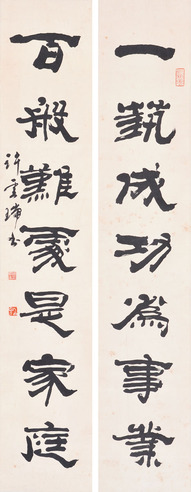 一藝成功為事業
百般難處是家庭
許雲瑞書